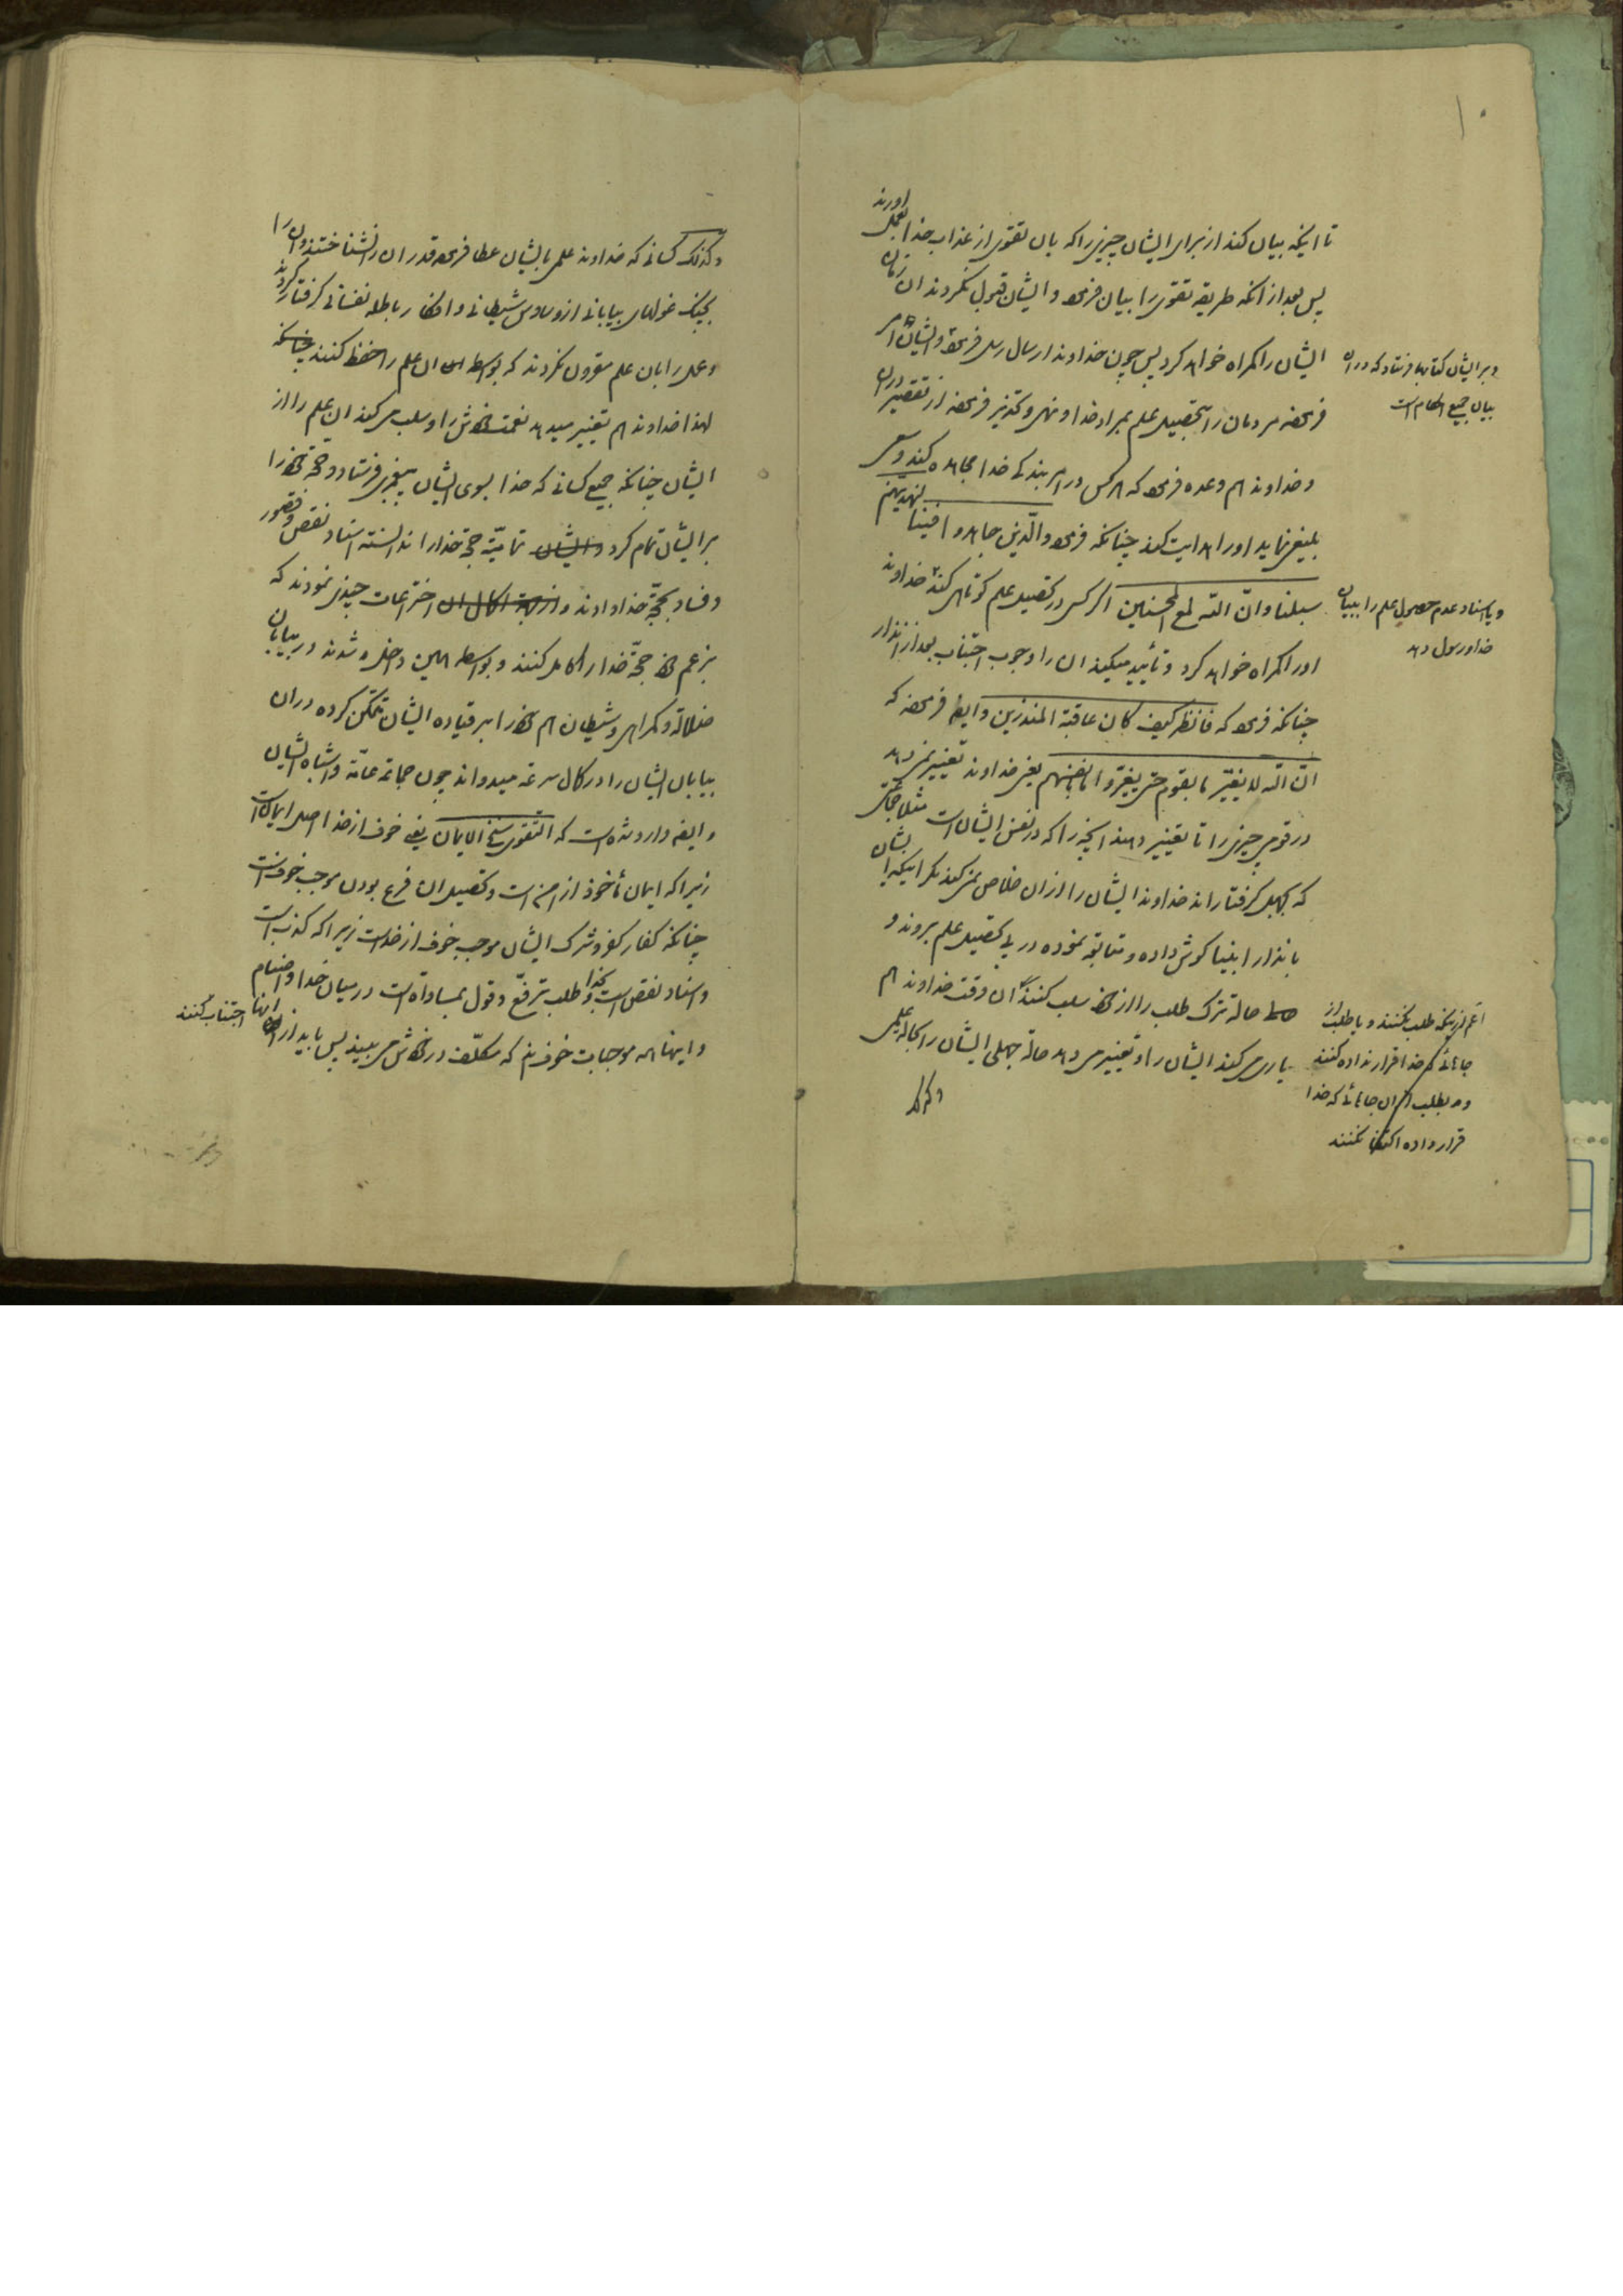 تا اینکه بیان کند از برای ایشان چیزیرا که بان تقوی از عذاب خدا بعمل اورند
پس بعد از انکه طریقه تقوی را بیان فرمود و ایشان قبول نکردند ان زمان
ایشان را کمراه خواهد کرد پس چون خداوند ارسال رسل فرموده و ایشان امر
و بر ایشان کتابها فرستاد که در ان
بیان جمیع احکام است
فرموده مردمان را بتحصیل علم بمراد خدا و نهی و تحذیر فرموده از تقصیر در ان
و خداوند هم وعده فرموده که هر کس در امر بندکی خدا مجاهده کند و سعی
بلیغ نماید او را هدایت کند چنانکه فرموده والّذین جاهدوا فینا لنهدینهم
سبلنا وانّ اللّه لمع المحسنین اکر کس در تحصیل علم کوتاهی کند خداوند
و یا اسناد عدم حصول علم را ببیان
خدا و رسول دهد
او را کمراه خواهد کرد و تأیید میکند ان را وجوب اجتناب بعد از انذار
چنانکه فرموده که فانظر کیف کان عاقبة المنذرین و ایضا فرموده که
انّ اللّه لا یغیّر ما بقوم حتی یغیّروا ما بانفسهم یعنی خداوند تغییر نمی دهد
در قومی چیزی را تا تغییر دهند انچیزرا که در نفس ایشان است مثلا جماعتی
که بجهل کرفتارند خداوند ایشان را از ان خلاص نمی کند مکر اینکه ایشان
بانذار انبیا کوش داده و متابعة نموده در پی تحصیل علم بروند و
حالة ترک طلب را از خود سلب کنند ان وقت خداوند هم
اعم از اینکه طلب نکنند و یا طلب از
جائی که خدا قرار نداده کنند
و بطلب از ان جائی که خدا
قرار داده اکتفا نکنند
یاری می کند ایشان را و تغییر می دهد حالة جهلی ایشان را بحالة علمی
وکذلک
وکذلک کسانی که خداوند علمی بایشان عطا فرموده قدر ان را نشناختند و ان را
بچنک غولهای بیابانی از وساوس شیطانی و افکار باطله نفسانی کرفتار کردند
و عمل را بان علم مقرون نکردند که بواسطه ان علم را حفظ کنند چنانکه
لهذا خداوند هم تغییر میدهد نعمت خودش را و سلب می کند ان علم را از
ایشان چنانکه جمیع کسانی که خدا بسوی ایشان پیغمبری فرستاد و حجّة خود را
بر ایشان تمام کرد و ایشان تمامیّة حجّة خدا را ندانسته اسناد نقص و قصور
و فساد بحجّة خدا دادند و از جهة اکمال ان اختراعات چندی نمودند که
بزعم خود حجّة خدا را کامل کنند و بواسطه همین داخل شدند در بیابان
ضلالة و کمراهی و شیطان هم خود را بر قیاده ایشان متمکن کرده در ان
بیابان ایشان را در کمال سرعة میدواند چون جماعة عامّة و اشباه ایشان
و ایضا وارد شده است که التقوی سنخ الایمان یعنی خوف از خدا اصل ایمان است
زیرا که ایمان مأخوذ از امن است و تحصیل ان فرع بودن موجب خوف است
چنانکه کفار کفر و شرک ایشان موجب خوف از خداست زیرا که کذب است
و اسناد نقص است بخدا و طلب ترفّع و قول بمساواة است در میان خدا و اصنام
و اینها همه موجبات خوفند که مکلّف در خودش می بیند پس باید از اینها اجتناب کنند